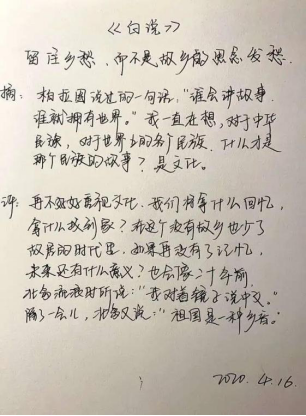 《白说》
留住乡愁，而不是故乡的思念发愁.
摘：柏拉图说过的一句话："谁会讲故事，
谁就拥有世界。"我一直在想，对于中华
民族，对于世界上的各个民族，什么才是
那个民族的故事？是文化。
评：再不好好重视文化，我们将拿什么回忆，
拿什么找到家？在这个没有故乡也少了
故居的时代里，如果再没有了记忆，
未来还有什么意义？也会像二十年前，
北岛流浪时所说："我对着镜子说中文。"
隔了一会儿，北岛又说："祖国是一种乡音。"
2020. 4. 16.